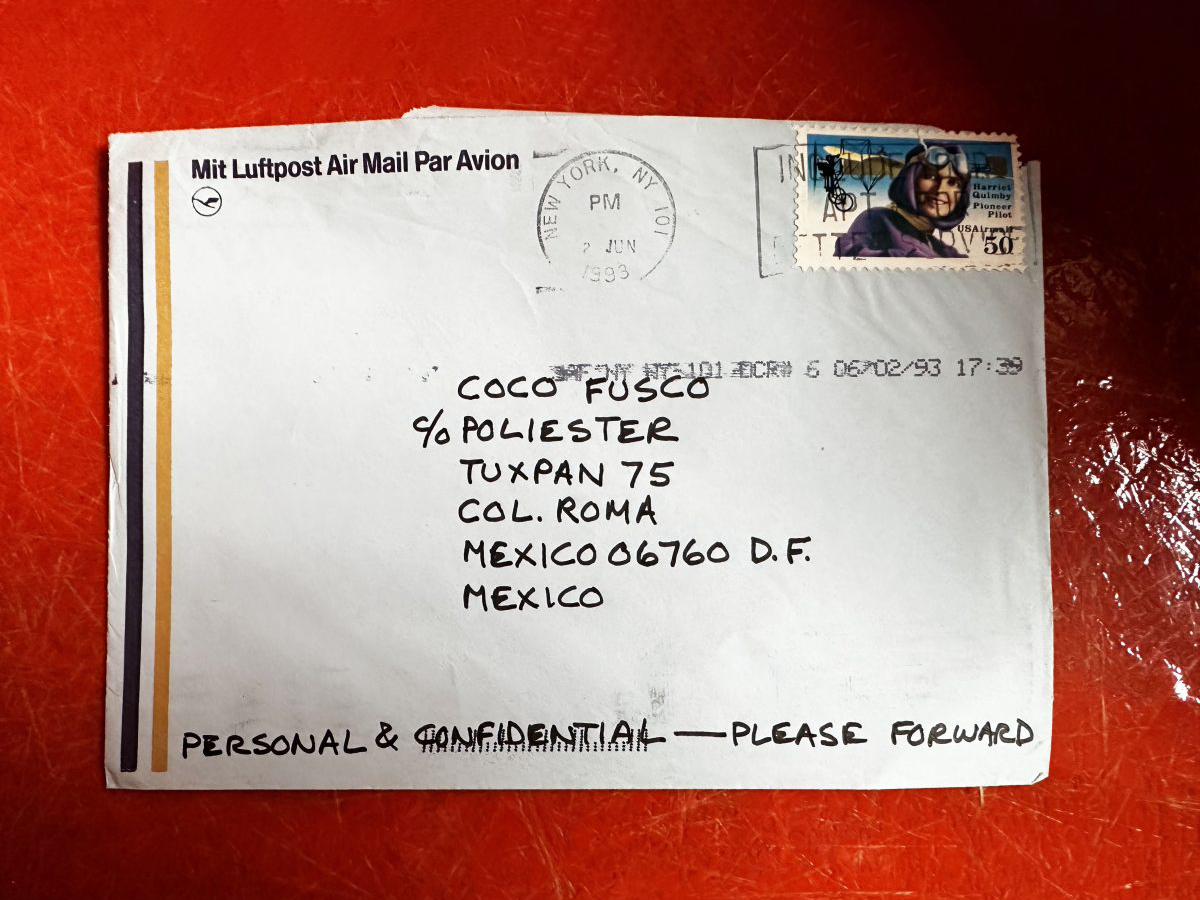 Mit Luftpost Air Mail Par Avion
NEW YORK, NY 101
PM
2 JUN
1993
Harriet
Quimby
Pioneer
Pilot
USAirmail
50
NY 101 6 06/02/93 17:39
COCO FUSCO
c/o POLIESTER
TUXPAN 75
COL. ROMA
MEXICO 06760 D.F.
MEXICO
PERSONAL & CONFIDENTIAL — PLEASE FORWARD